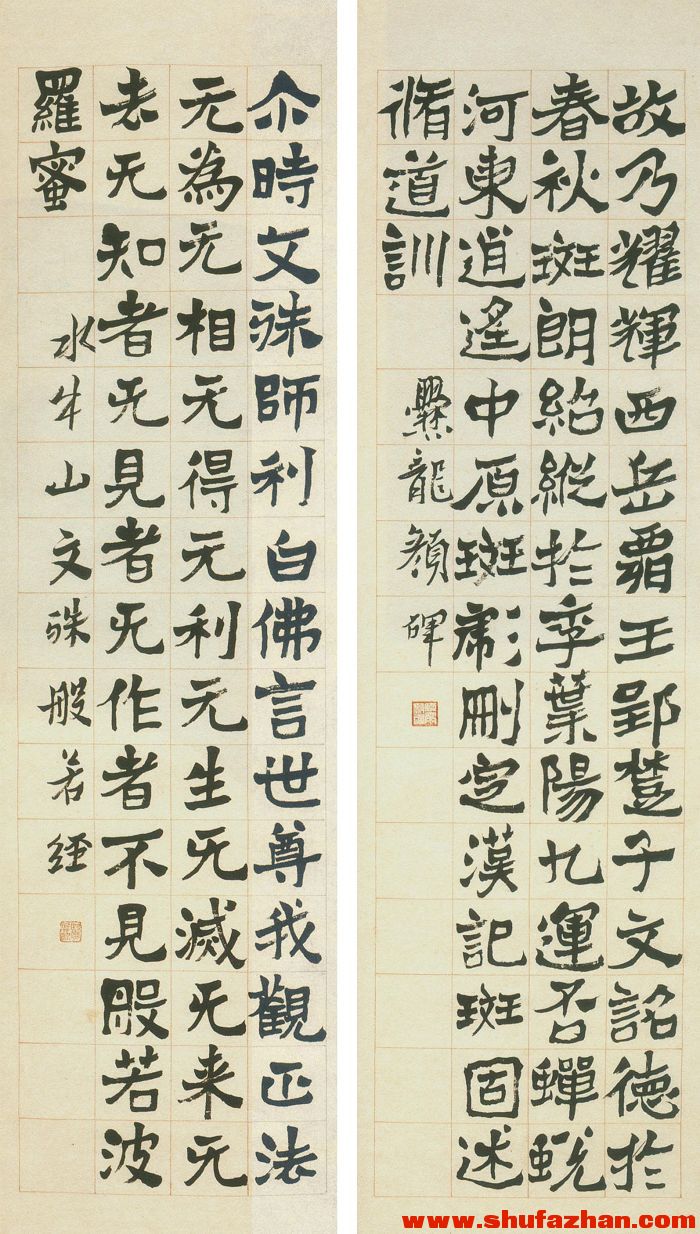 故乃耀輝西岳霸王郢楚子文詺德於
春秋斑朗紹縱於季葉陽九運否蟬蛻
河東逍遙中原斑彪刪定漢記斑固述
脩道訓
爨龍顏碑
尒時文殊師利白佛言世尊我觀正法
无為无相无得无利无生无滅无来无
去无知者无見者无作者不見般若波
羅蜜
水牛山文殊般若經
www.shufazhan.com